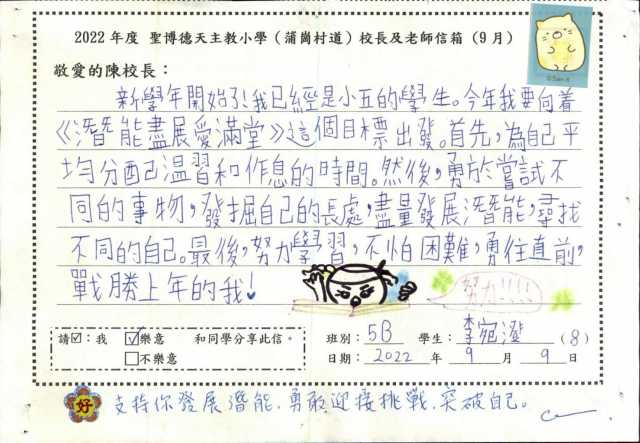 2022年度 聖博德天主教小學（蒲崗村道）校長及老師信箱（9月）
敬愛的陳校長：
新學年開始了！我已經是小五的學生。今年我要向着
《潛能盡展愛滿堂》這個目標出發。首先，為自己平
均分配己温習和作息的時間。然後，勇於嘗試不
同的事物，發掘自己的長處，盡量發展潛能，尋找
不同的自己。最後，努力學習，不怕困難，勇往直前，
戰勝上年的我！
努力!!!!
請☑：我 ☑樂意 和同學分享此信。
□不樂意
班別：5B 學生：李宛澄（8）
日期：2022年9月9日
好 支持你發展潛能，勇敢迎接挑戰，突破自己。